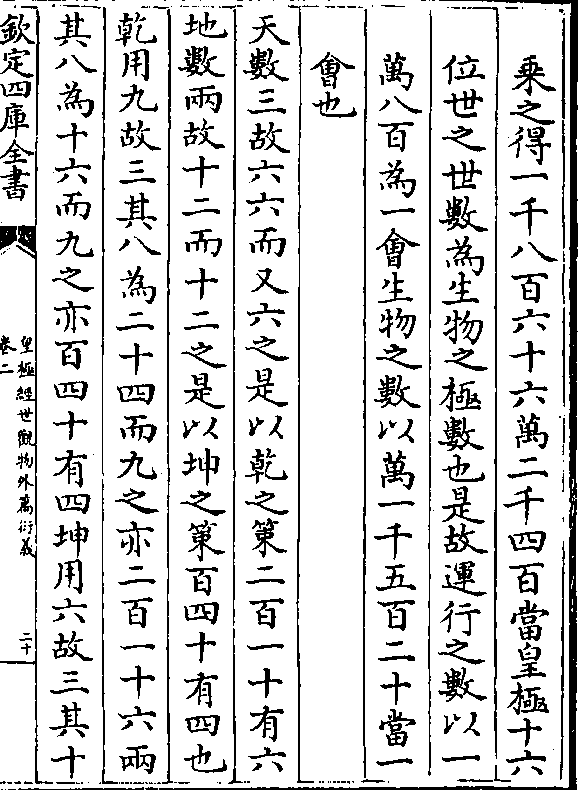 乘之得一千八百六十六萬二千四百當皇極十六
位世之世數為生物之極數也是故運行之數以一
萬八百為一會生物之數以萬一千五百二十當一
會也
天數三故六六而又六之是以乾之策二百一十有六
地數兩故十二而十二之是以坤之策百四十有四也
乾用九故三其八為二十四而九之亦二百一十六兩
其八為十六而九之亦百四十有四坤用六故三其十
欽定四庫全書
皇極經世觀物外篇衍義
卷二
二十